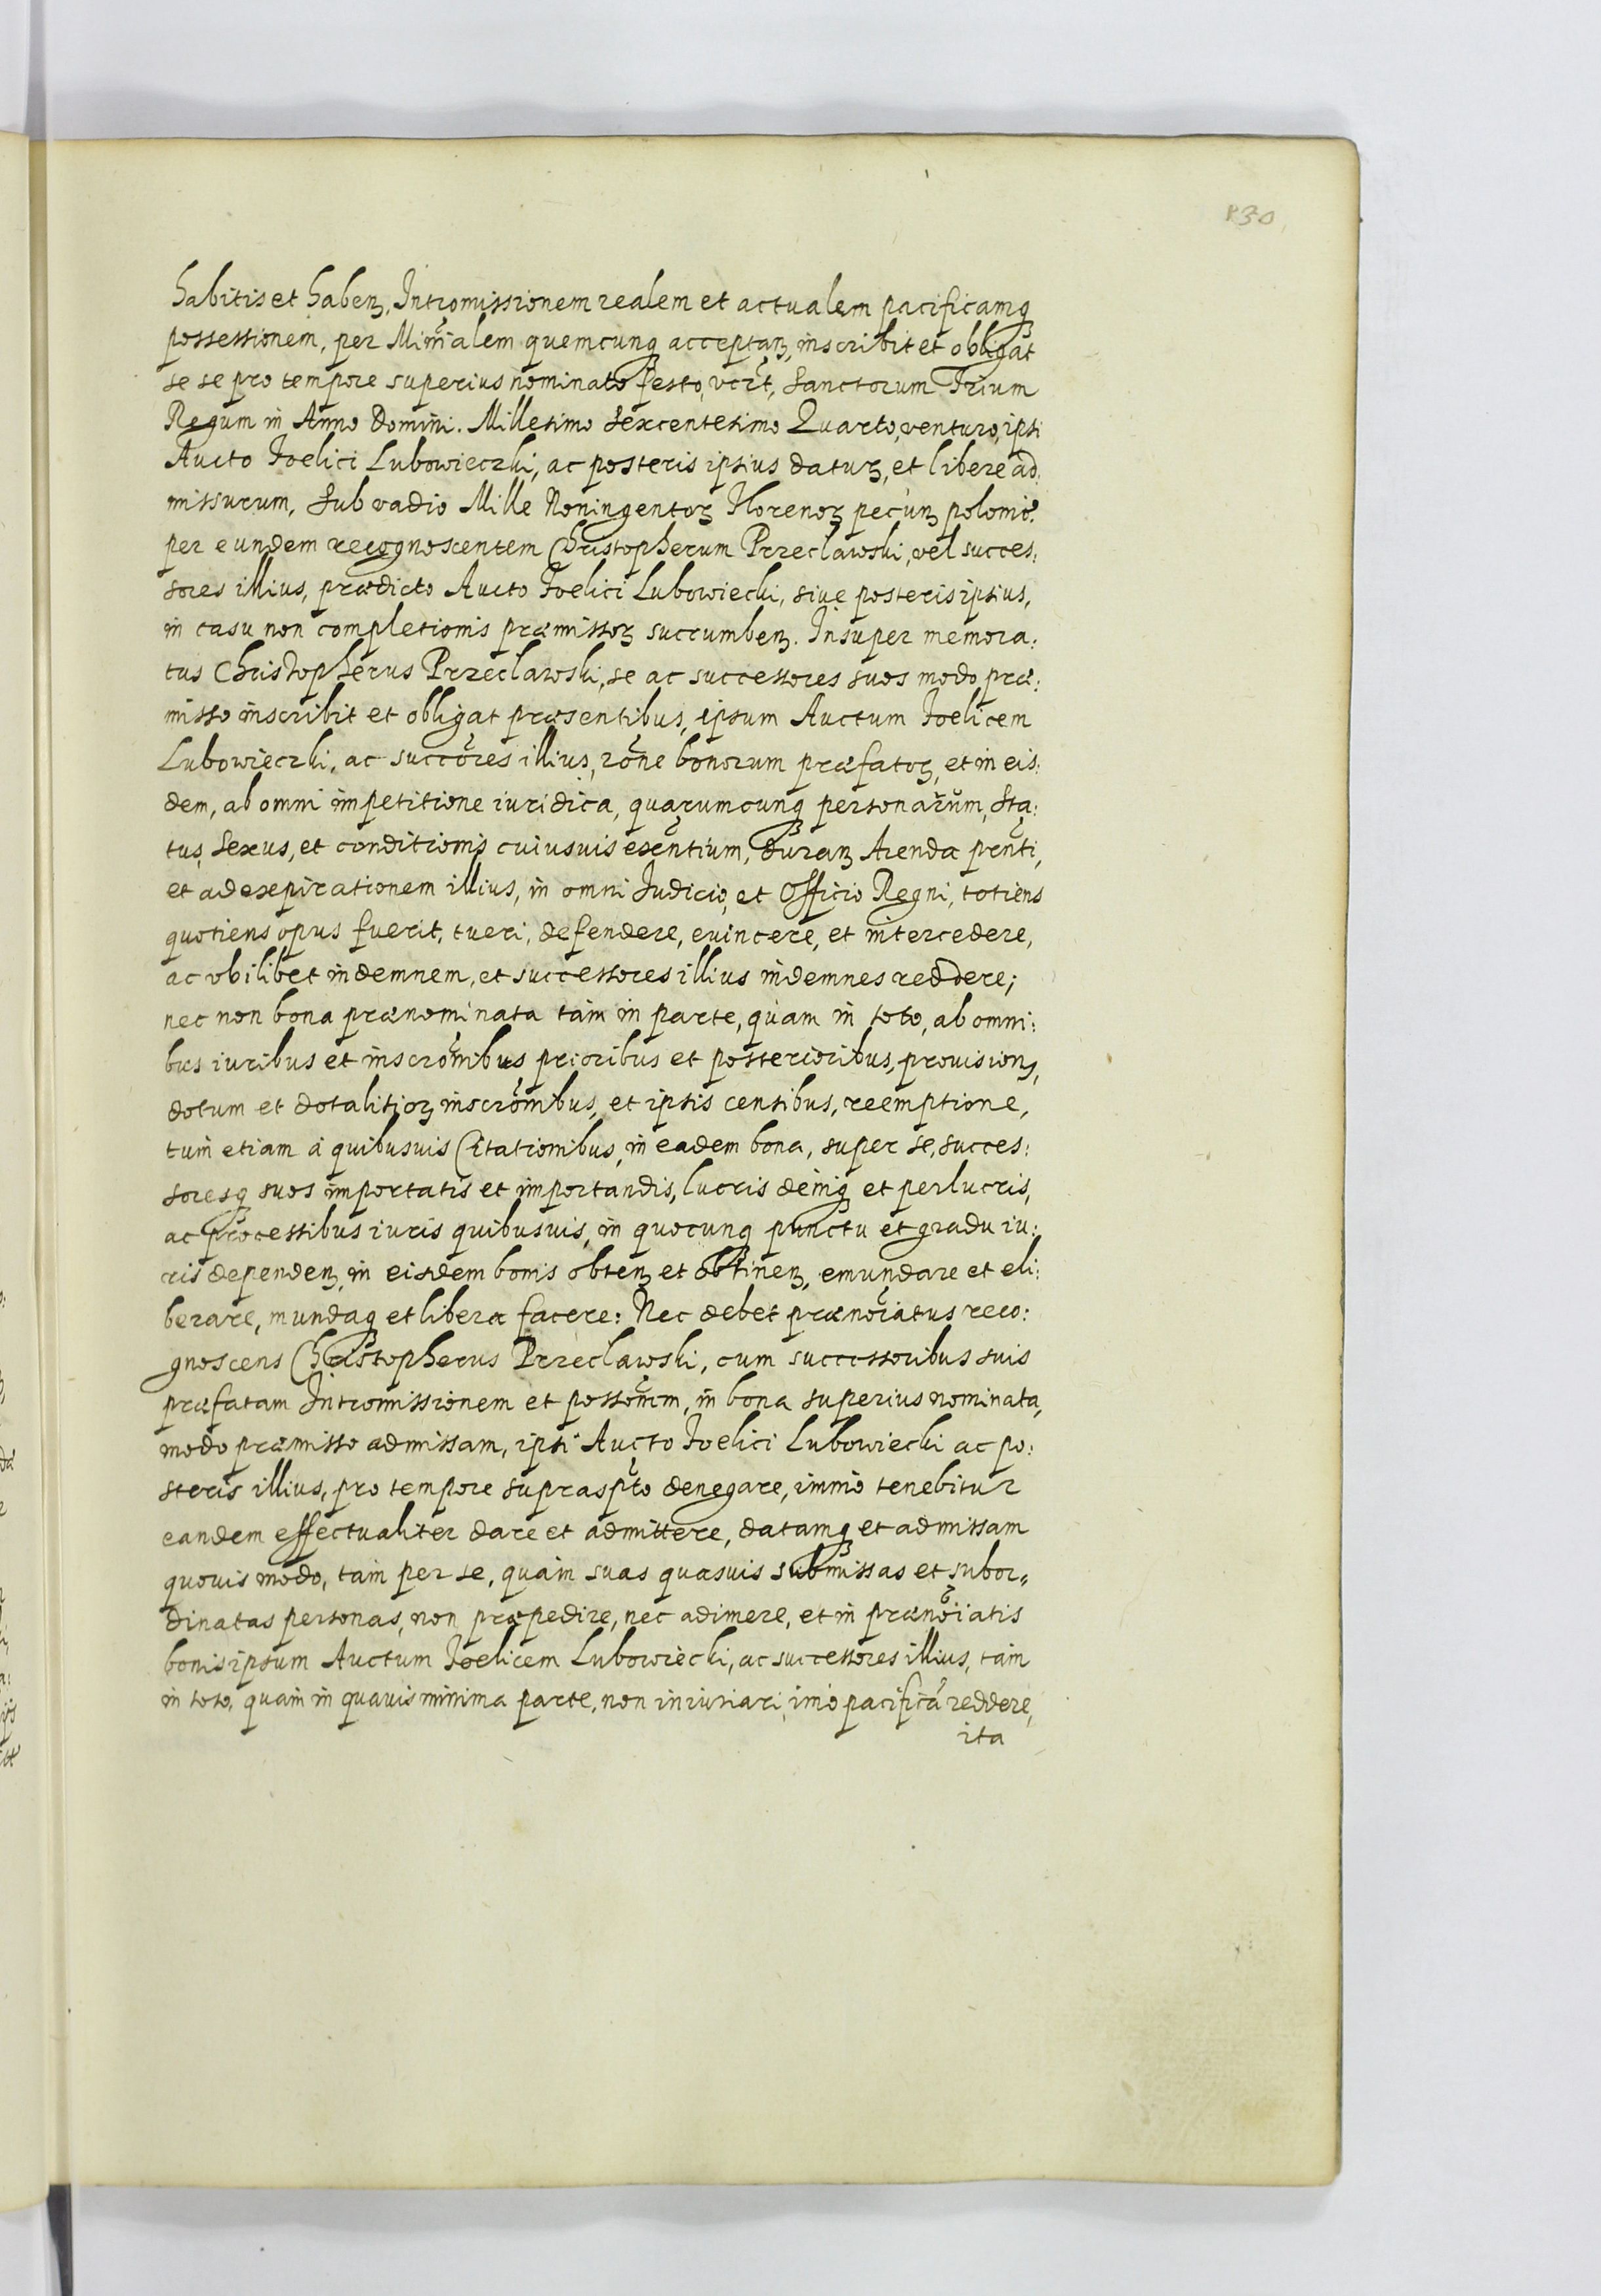 130
habitis et habenʒ, Intromissionem realem et actualem pacificamqʒ
possessionem, per Minr̃alem quemcunqʒ acceptanʒ, inscribit et obligat
se se pro tempore superius nominato festo, vcrt, Sanctorum Trium
Regum in Anno Domini. Millesimo Sexcentesimo Quarto, venturo, ipsi
Aucto Foelici Lubowieczki, ac posteris ipsius daturʒ, et libere ad:
missurum, Sub vadio Mille Noningentorʒ Florenorʒ pecunʒ polonic̃.
per eundem recognoscentem Christopherum Przeclawski, vel succes:
sores illius, prædicto Aucto Foelici Lubowiecki, siue posteris ipsius,
in casu non completionis præmissorʒ succumbenʒ. Insuper memora:
tus Christopherus Przeclawski, se ac successores suos modo præ:
misso inscribit et obligat præsentibus, ipsum Auctum Foelicem
Lubowieczki, ac succõres illius, rõne bonorum præfatorʒ, et in eis:
dem, ab omni impetitione iuridica, quarumcunqʒ personarũm, sta:
tus, sexus, et conditionis cuiusuis exeñtium, duranʒ Arenda prñti,
et ad expirationem illius, in omni Iudicio, et Officio Regni, totiens
quotiens opus fuerit, tueri, defendere, euincere, et intercedere,
ac vbilibet indemnem, et successores illius indemnes reddere;
nec non bona prænominata tàm in parte, quàm in toto, ab omni:
bus iuribus et inscrõnibus prioribus et posterioribus, prouisionʒ,
dotum et dotalitiorʒ inscrõnibus, et ipsis censibus, reemptione,
tum etiam à quibusuis Citationibus, in eadem bona, super se, succes:
soresqʒ suos importatis et importandis, lucris deniqʒ et perlucris,
ac processibus iuris quibusuis, in quocunqʒ punctu et gradu iu:
ris dependenʒ, in eisdem bonis obtenʒ et obtinenʒ, emundare et eli:
berare, mundaqʒ et libera facere: Nec debet prænoĩatus reco:
gnoscens Christopherus Przeclawski, cum successoribus suis
præfatam Intromissionem et possoñem, in bona superius nominata,
modo præmisso admissam, ipsi Aucto Foelici Lubowiecki ac po:
steris illius, pro tempore supraspt̃o denegare, immò tenebitur
eandem effectualiter dare et admittere, datamqʒ et admissam
quouis modo, tam per se, quàm suas quasuis submissas et subor„
dinatas personas, non præpedire, nec adimere, et in prænoĩatis
bonis ipsum Auctum Foelicem Lubowiecki, ac successores illius, tàm
in toto, quàm in quauis minima parte, non iniuriari, imò pacificã reddere,
ita